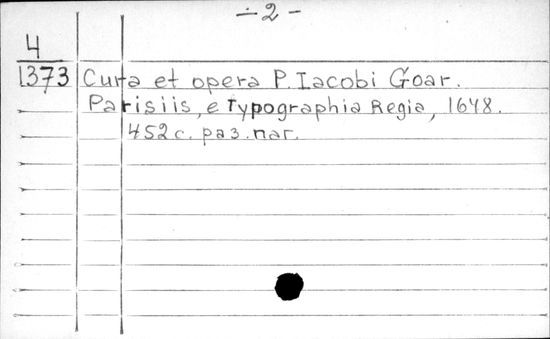 ÷ 2 -
4
1373 Cura et opera P. Iacobi Goar.
Parisiis, e Typographia Regia, 1648.
452 с. раз. паг.